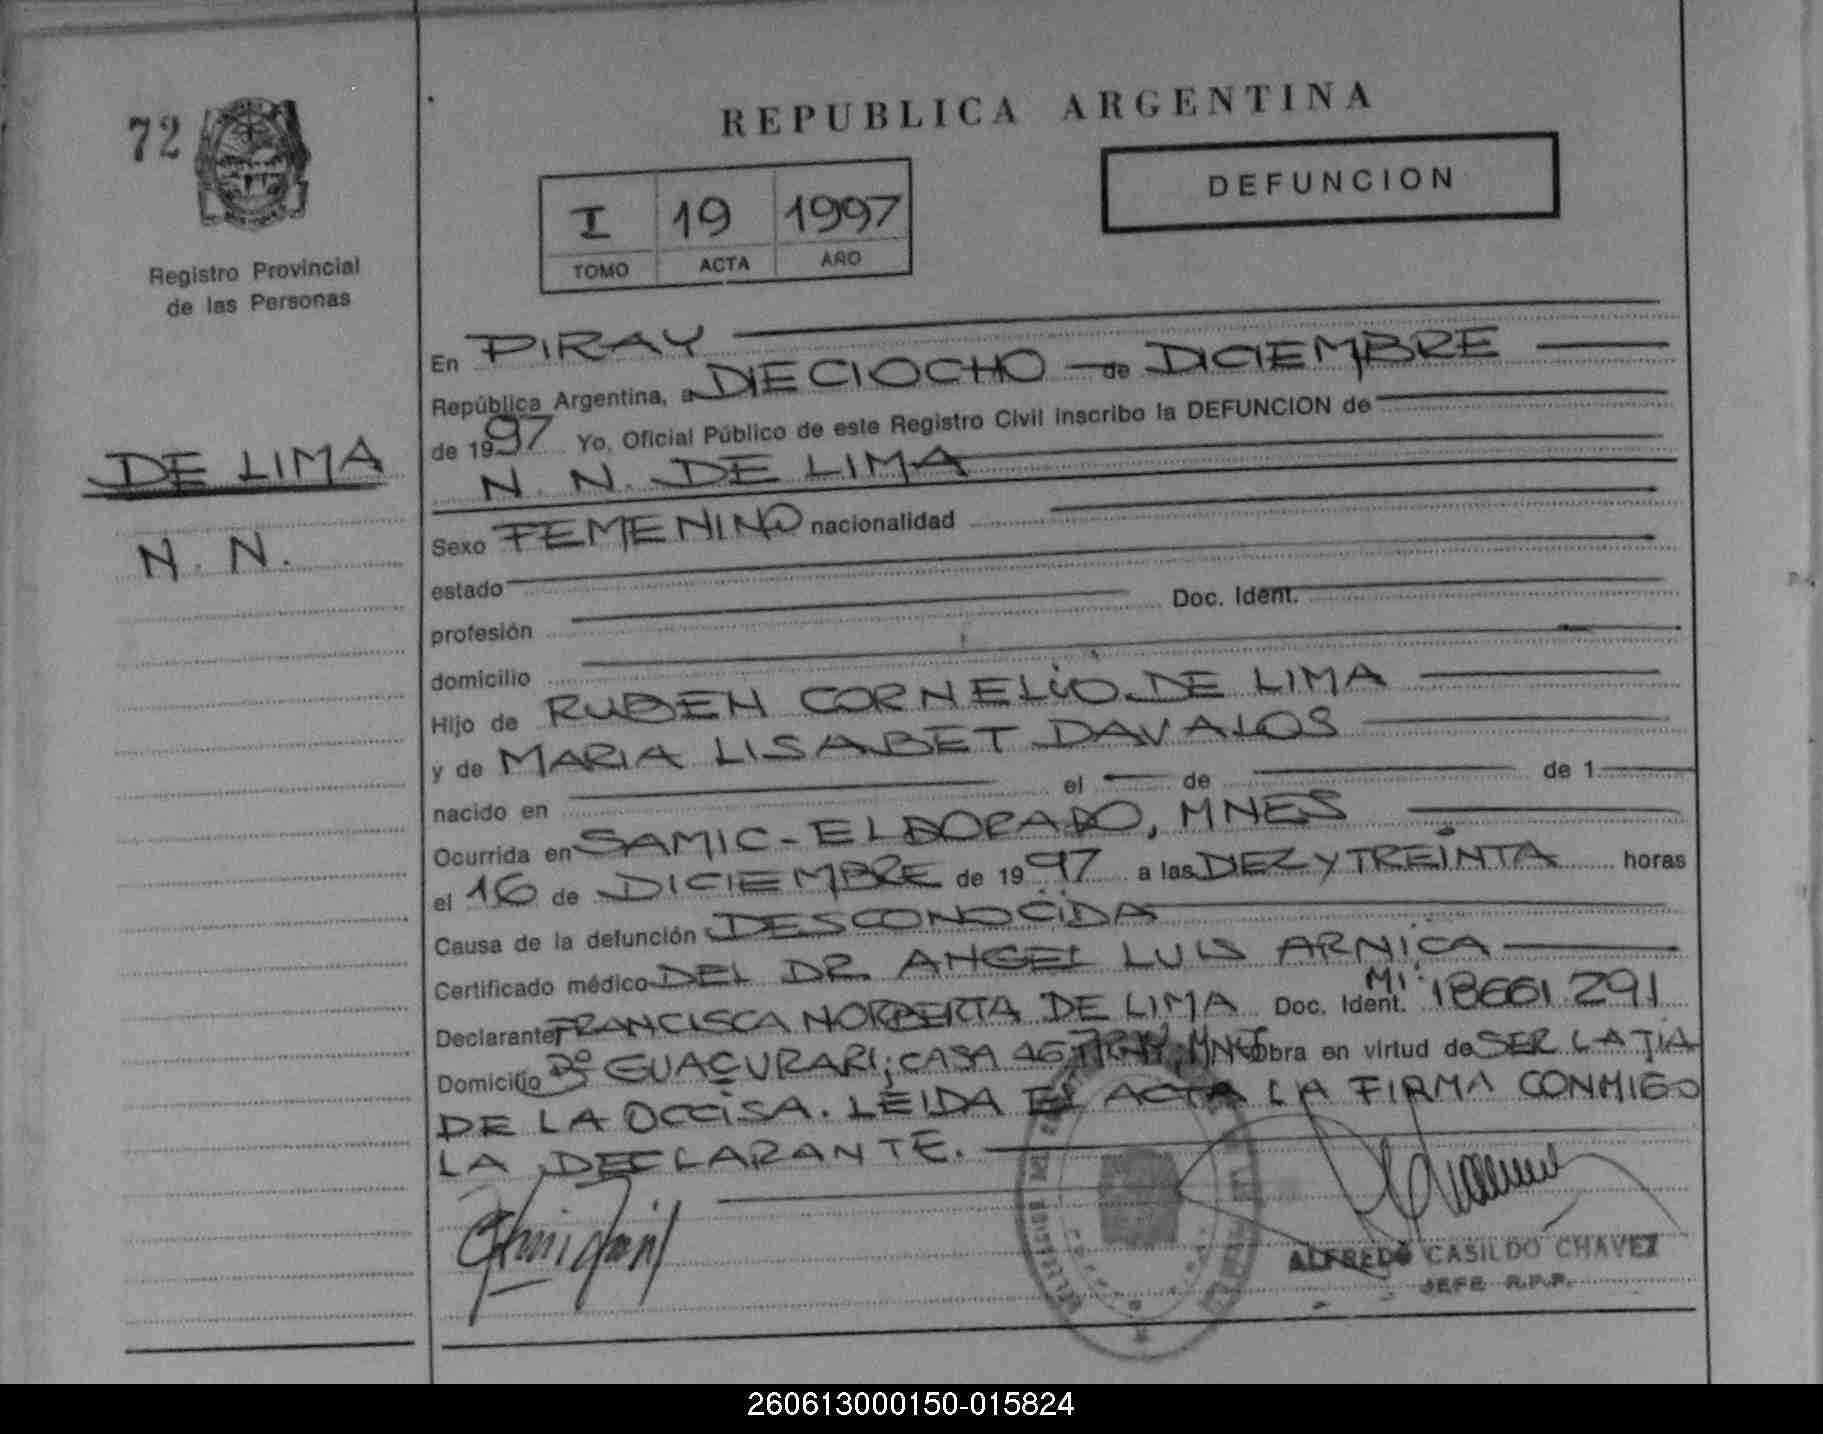 72
Registro Provincial
de las Personas
REPUBLICA ARGENTINA
DEFUNCION
I 19 1997
TOMO ACTA AÑO
DE LIMA
N. N.
En PIRAY
República Argentina, a DIECIOCHO de DICIEMBRE
de 1997 Yo, Oficial Público de este Registro Civil inscribo la DEFUNCION de
N. N. DE LIMA
Sexo FEMENINO nacionalidad
estado
profesión Doc. Ident.
domicilio
Hijo de RUBEN CORNELIO DE LIMA
y de MARIA LISABET DAVALOS
nacido en el de de 1
Ocurrida en SAMIC - ELDORADO, MNES
el 16 de DICIEMBRE de 1997 a las DIEZ Y TREINTA horas
Causa de la defunción DESCONOCIDA
Certificado médico DEL DR. ANGEL LUIS ARNICA
Declarante FRANCISCA NORBERTA DE LIMA Doc. Ident. MI: 18661291
Domicilio Bº GUAÇURARI; CASA 46 PIRAY, MNES obra en virtud de SER LA TIA
DE LA OCCISA. LEIDA EL ACTA LA FIRMA CONMIGO
LA DECLARANTE.
ALFREDO CASILDO CHAVEZ
JEFE R.P.P.
260613000150-015824